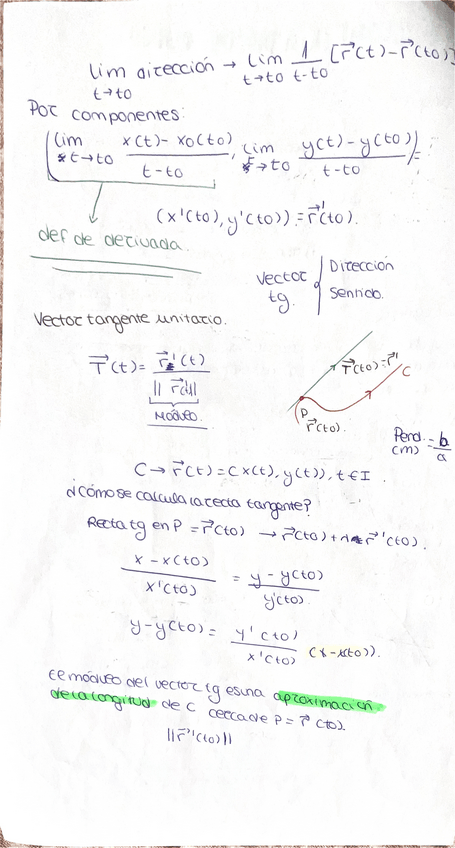 lim dirección → lim 1/(t-to) [r⃗(t)-r⃗(to)]
t→to t→to
Por componentes:
(lim t→to (x(t)-xo(to))/(t-to), lim t→to (y(t)-y(to))/(t-to)) =
(x'(to), y'(to)) = r⃗'(to).
def de derivada.
Vector tg. Dirección
Sentido.
Vector tangente unitario.
T⃗(t) = r⃗'(t)/||r⃗'(t)||
MÓDULO.
T⃗(to)=r⃗'
C
P
r⃗(to).
Pend. (m) = b/a
C → r⃗(t) = (x(t), y(t)), t∈I.
¿Cómo se calcula la recta tangente?
Recta tg en P = r⃗(to) → r⃗(to) + r⃗'(to).
(x-x(to))/x'(to) = (y-y(to))/y'(to).
y-y(to) = y'(to)/x'(to) (x-x(to)).
El módulo del vector tg es una aproximación
de la longitud de C cerca de P = r⃗(to).
||r⃗'(to)||